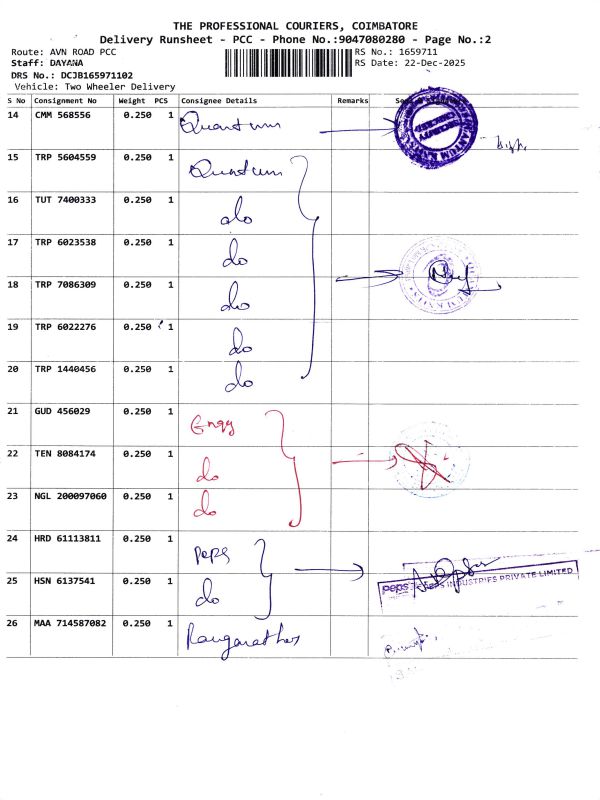 THE PROFESSIONAL COURIERS, COIMBATORE
Delivery Runsheet - PCC - Phone No.:9047080280 - Page No.:2
Route: AVN ROAD PCC
RS No.: 1659711
Staff: DAYANA
RS Date: 22-Dec-2025
DRS No.: DCJB165971102
Vehicle: Two Wheeler Delivery
S No Consignment No Weight PCS Consignee Details Remarks
14 CMM 568556 0.250 1 Quantum
15 TRP 5604559 0.250 1 Quantum
16 TUT 7400333 0.250 1 do
17 TRP 6023538 0.250 1 do
18 TRP 7086309 0.250 1 do
19 TRP 6022276 0.250 1 do
20 TRP 1440456 0.250 1 do
21 GUD 456029 0.250 1
22 TEN 8084174 0.250 1 do
23 NGL 200097060 0.250 1 do
24 HRD 61113811 0.250 1 Peps
25 HSN 6137541 0.250 1 do
peps PEPS INDUSTRIES PRIVATE LIMITED
26 MAA 714587082 0.250 1